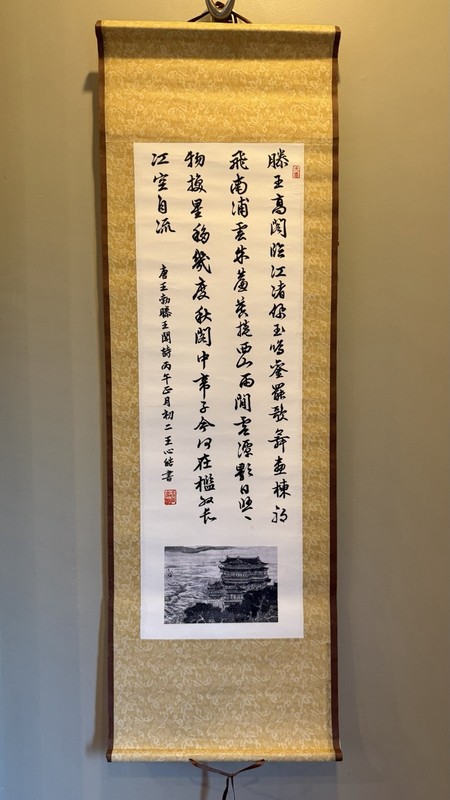 滕王高閣臨江渚佩玉鳴鸞罷歌舞畫棟朝
飛南浦雲朱簾暮捲西山雨閒雲潭影日悠々
物換星移幾度秋閣中帝子今何在檻外長
江空自流
唐王勃滕王閣詩丙午正月初二王心書